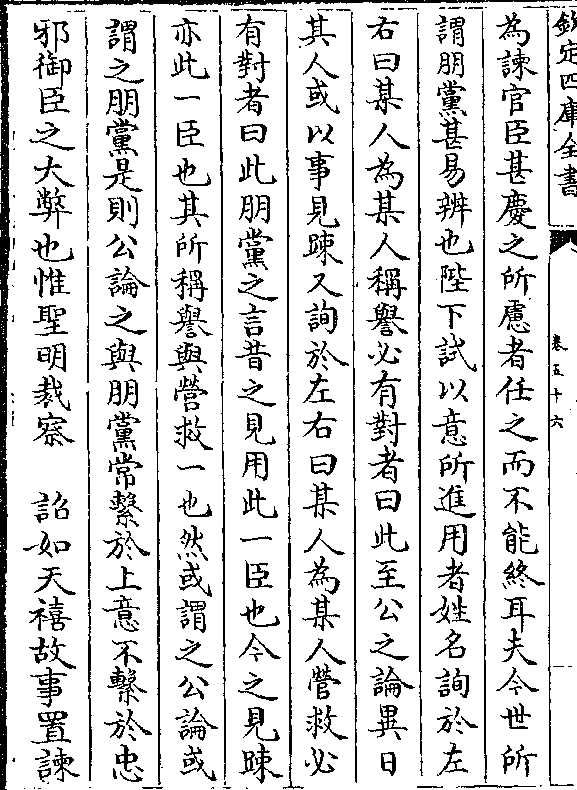 欽定四庫全書
卷五十六
為諫官臣甚慶之所慮者任之而不能終耳夫今世所
謂朋黨甚易辨也陛下試以意所進用者姓名詢於左
右曰某人為某人稱譽必有對者曰此至公之論異日
其人或以事見踈又詢於左右曰某人為某人營救必
有對者曰此朋黨之言昔之見用此一臣也今之見踈
亦此一臣也其所稱譽與營救一也然或謂之公論或
謂之朋黨是則公論之與朋黨常繫於上意不繫於忠
邪御臣之大弊也惟聖明裁察　詔如天禧故事置諫